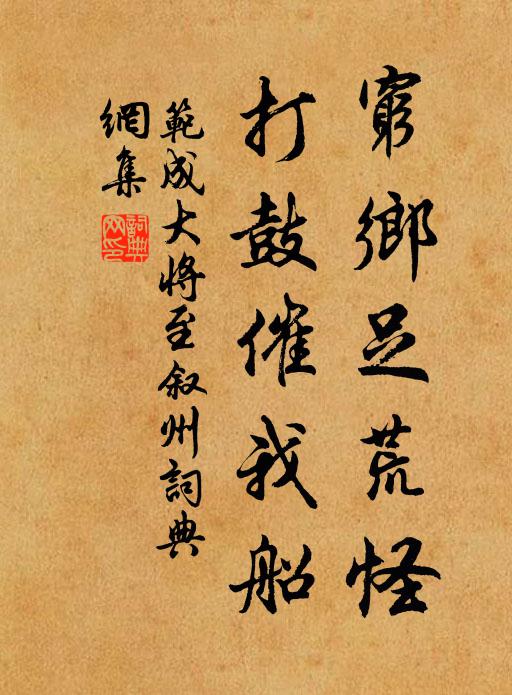 窮鄉足荒怪
打鼓催我船
範成大將至叙州詞典
網集
詞典網印